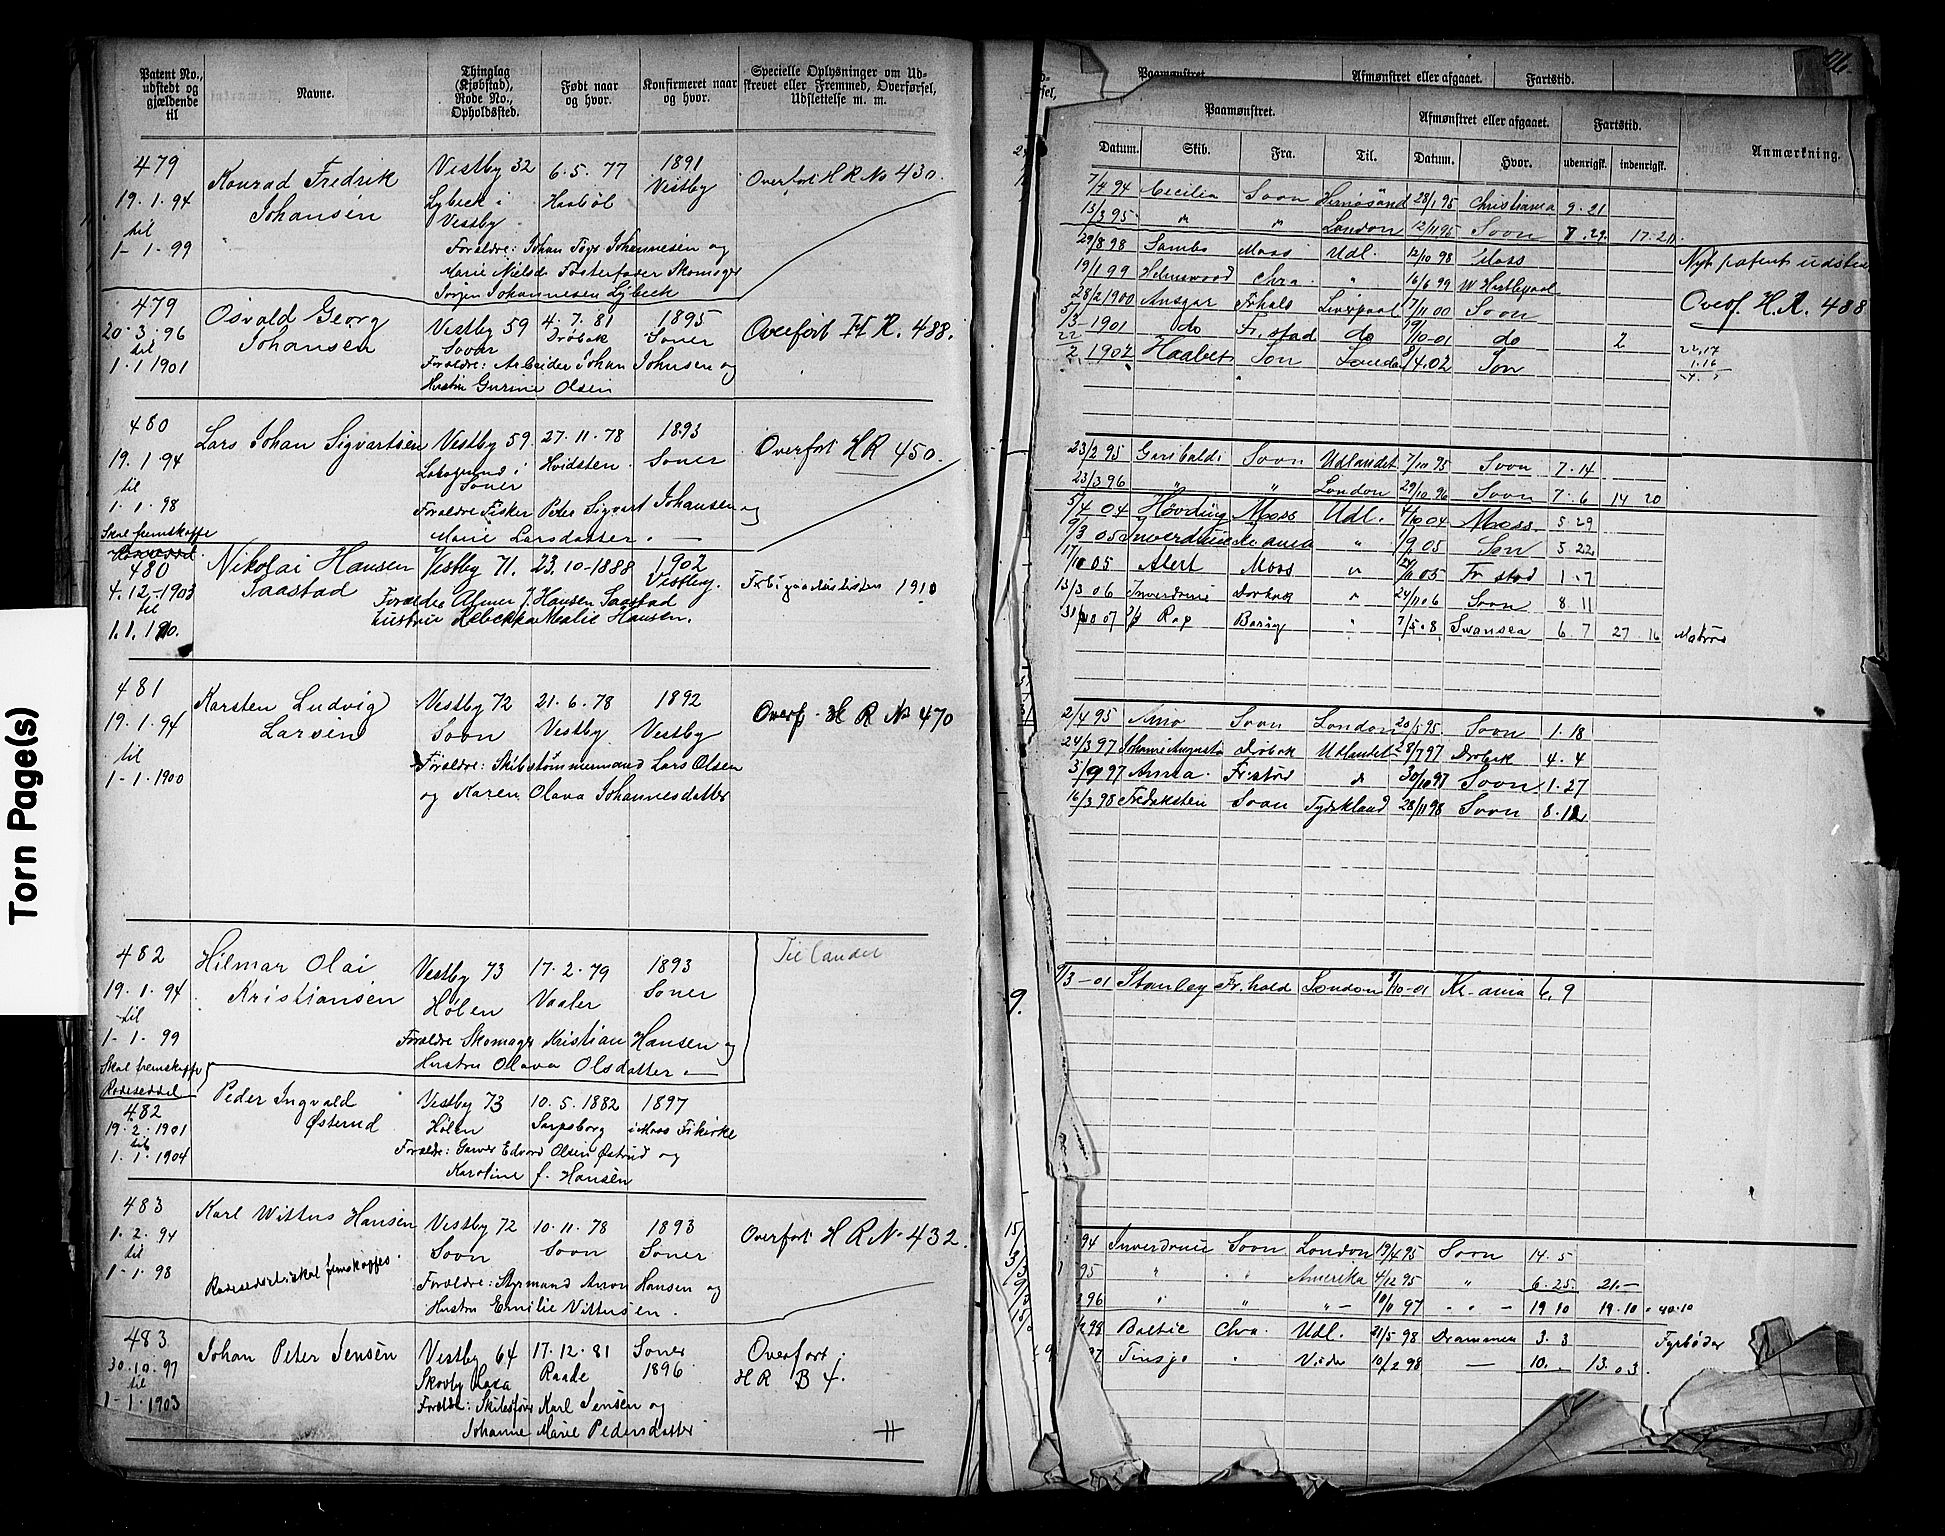 Torn Page(s)
Patent No., udstedt og gjældende til
Navne.
Thinglag (Kjøbstad), Rode No., Opholdssted.
Født naar og hvor.
Konfirmeret naar og hvor.
Specielle Oplysninger om Udskrevet eller Fremmed, Overførsel, Udslettelse m. m.
479
19.1.94
til
1-1.99
Konrad Fredrik
Johansen
Vestby 32 6.5.77 1891
Lybeck i Haabøl Vestby
Vestby
Overført H R No 430.
Forældre: Johan Johannesen og
Marie Nielsd Fosterfader Skomager
Jørgen Johannesen Lybeck
479
20.3.96
til
1.1.1901
Osvald Georg
Johansen
Vestby 59 4.7.81 1895
Soon Drøbak Soner
Forældre: Arbeider Johan Johnsen og
Hustru Gurine Olsen
Overført H. R. 488.
480
19.1.94
til
1.1.98
Skal fremskaffe
Lars Johan Sigvartsen
Vestby 59 27.11.78 1893
Hvidsten Soner
Soner
Overført H R 450.
Forældre Fisker Peter Sigvart Johansen og
Marie Larsdatter.
480
4.12.1903
til
1.1.10.
Nikolai Hansen
Saastad
Vestby 71. 23.10-1888 1902
Vestby.
Forældre J. Hansen Saastad
Hustru Rebekka Hansen.
1910
481
19.1.94
til
1-1.1900
Karsten Ludvig
Larsen
Vestby 72 21.6.78 1892
Soon Vestby Vestby
Forældre: Skibstømmermand Lars Olsen
og Karen Olava Johannesdatter
Overf. H R No 470
482
19.1.94
til
1-1.99
Skal fremskaffe
Rodeseddel
Hilmar Olai
Kristiansen
Vestby 73 17.2.79 1893
Hølen Vaaler Soner
Forældre Skomager Kristian Hansen og
Hustru Olava Olsdatter.
Til landet
482
19.2.1901
til
1.1.1904
Peder Ingvald
Østerud
Vestby 73 10.5.1882 1897
Hølen Sarpsborg i Moss Fikirke
Forældre: Garver Edvard Olsen Østrud og
Karoline f. Hansen
483
1.2.94
til
1-1.98
Karl Wittus Hansen
Rodeseddel skal fremskaffes.
Vestby 72 10.11.78 1893
Soon Soon Soner
Forældre: Styrmand Anton Hansen og
Hustru Emilie Vittusen.
Overført H R No 432.
483
30.10.97
til
1-1.1903
Johan Peter Jensen
Vestby 64 17.12.81 Soner
Skovby Raade 1896
Forældre: Skibsfører Karl Jensen og
Johanne Marie Pedersdatter
Overført
H R B 4.
Paamønstret. Afmønstret eller afgaaet. Fartstid.
Paamønstret. Afmønstret eller afgaaet. Fartstid. Anmærkning.
Datum. Skib. Fra. Til. Datum. Hvor. udenrigsk. indenrigsk.
7/4 94 Cecilia Soon Hernøsand 28/1 95 Christiania 9.21
13/3 95 " " London 12/11 95 Soon 7.29. 17.21.
29/8 98 Sambo Moss Udl. 12/10 98 Moss
Nyt patent udsted
19/1 99 Chra " 16/6 99 W. Hartlepool
28/2 1900 Ansgar Liverpool 7/11 00 Soon
Overf. H.R. 488
1901 do Fr.stad do 10-01 do 2
1902 Haabet Son London 8/4.02 Son
23/2 95 Garibaldi Soon Udlandet 7/10 95 Soon 7.14
23/3 96 " " London 29/10 96 Soon 7.6 14 20
5/4 04 Høvding Moss Udl. 4/10 04 Moss 5 29
9/3 05 Inverdruie Kr.ania " 05 Son 5 22
17/10 05 Alert Moss " 05 Fr.stad 1.7
13/3 06 Inverdruie Drøbak " 24/11 06 Soon 8.11
07 Rap " 7/5.08 Swansea 6.7 27.16 Matros
2/4 95 Soon London 20/5 95 Soon 1.18
24/3 97 Johanne Augusta Drøbak Udlandet 28/7 97 Drøbak 4.4
3/9 97 Anna. Fr.stad " 30/10 97 Soon 1.27
16/3 98 Fredriksten Soon Tydskland 28/11 98 Soon 8.12
9/3-01 Stanley Fr.hald London 10-01 Kr-ania 6.9
94 Inverdruie Soon London 19/4 95 Soon 14.5
95 " " Amerika 4/12 95 " 6.25 21.-
96 " " " 10/11 97 " 19.10 19.10
98 Baltic Chra. Udl. 21/5 98 Drammen 3.3 Fyrbøder
97 Tinsjø " 10/2 98 — 10. 13.03.